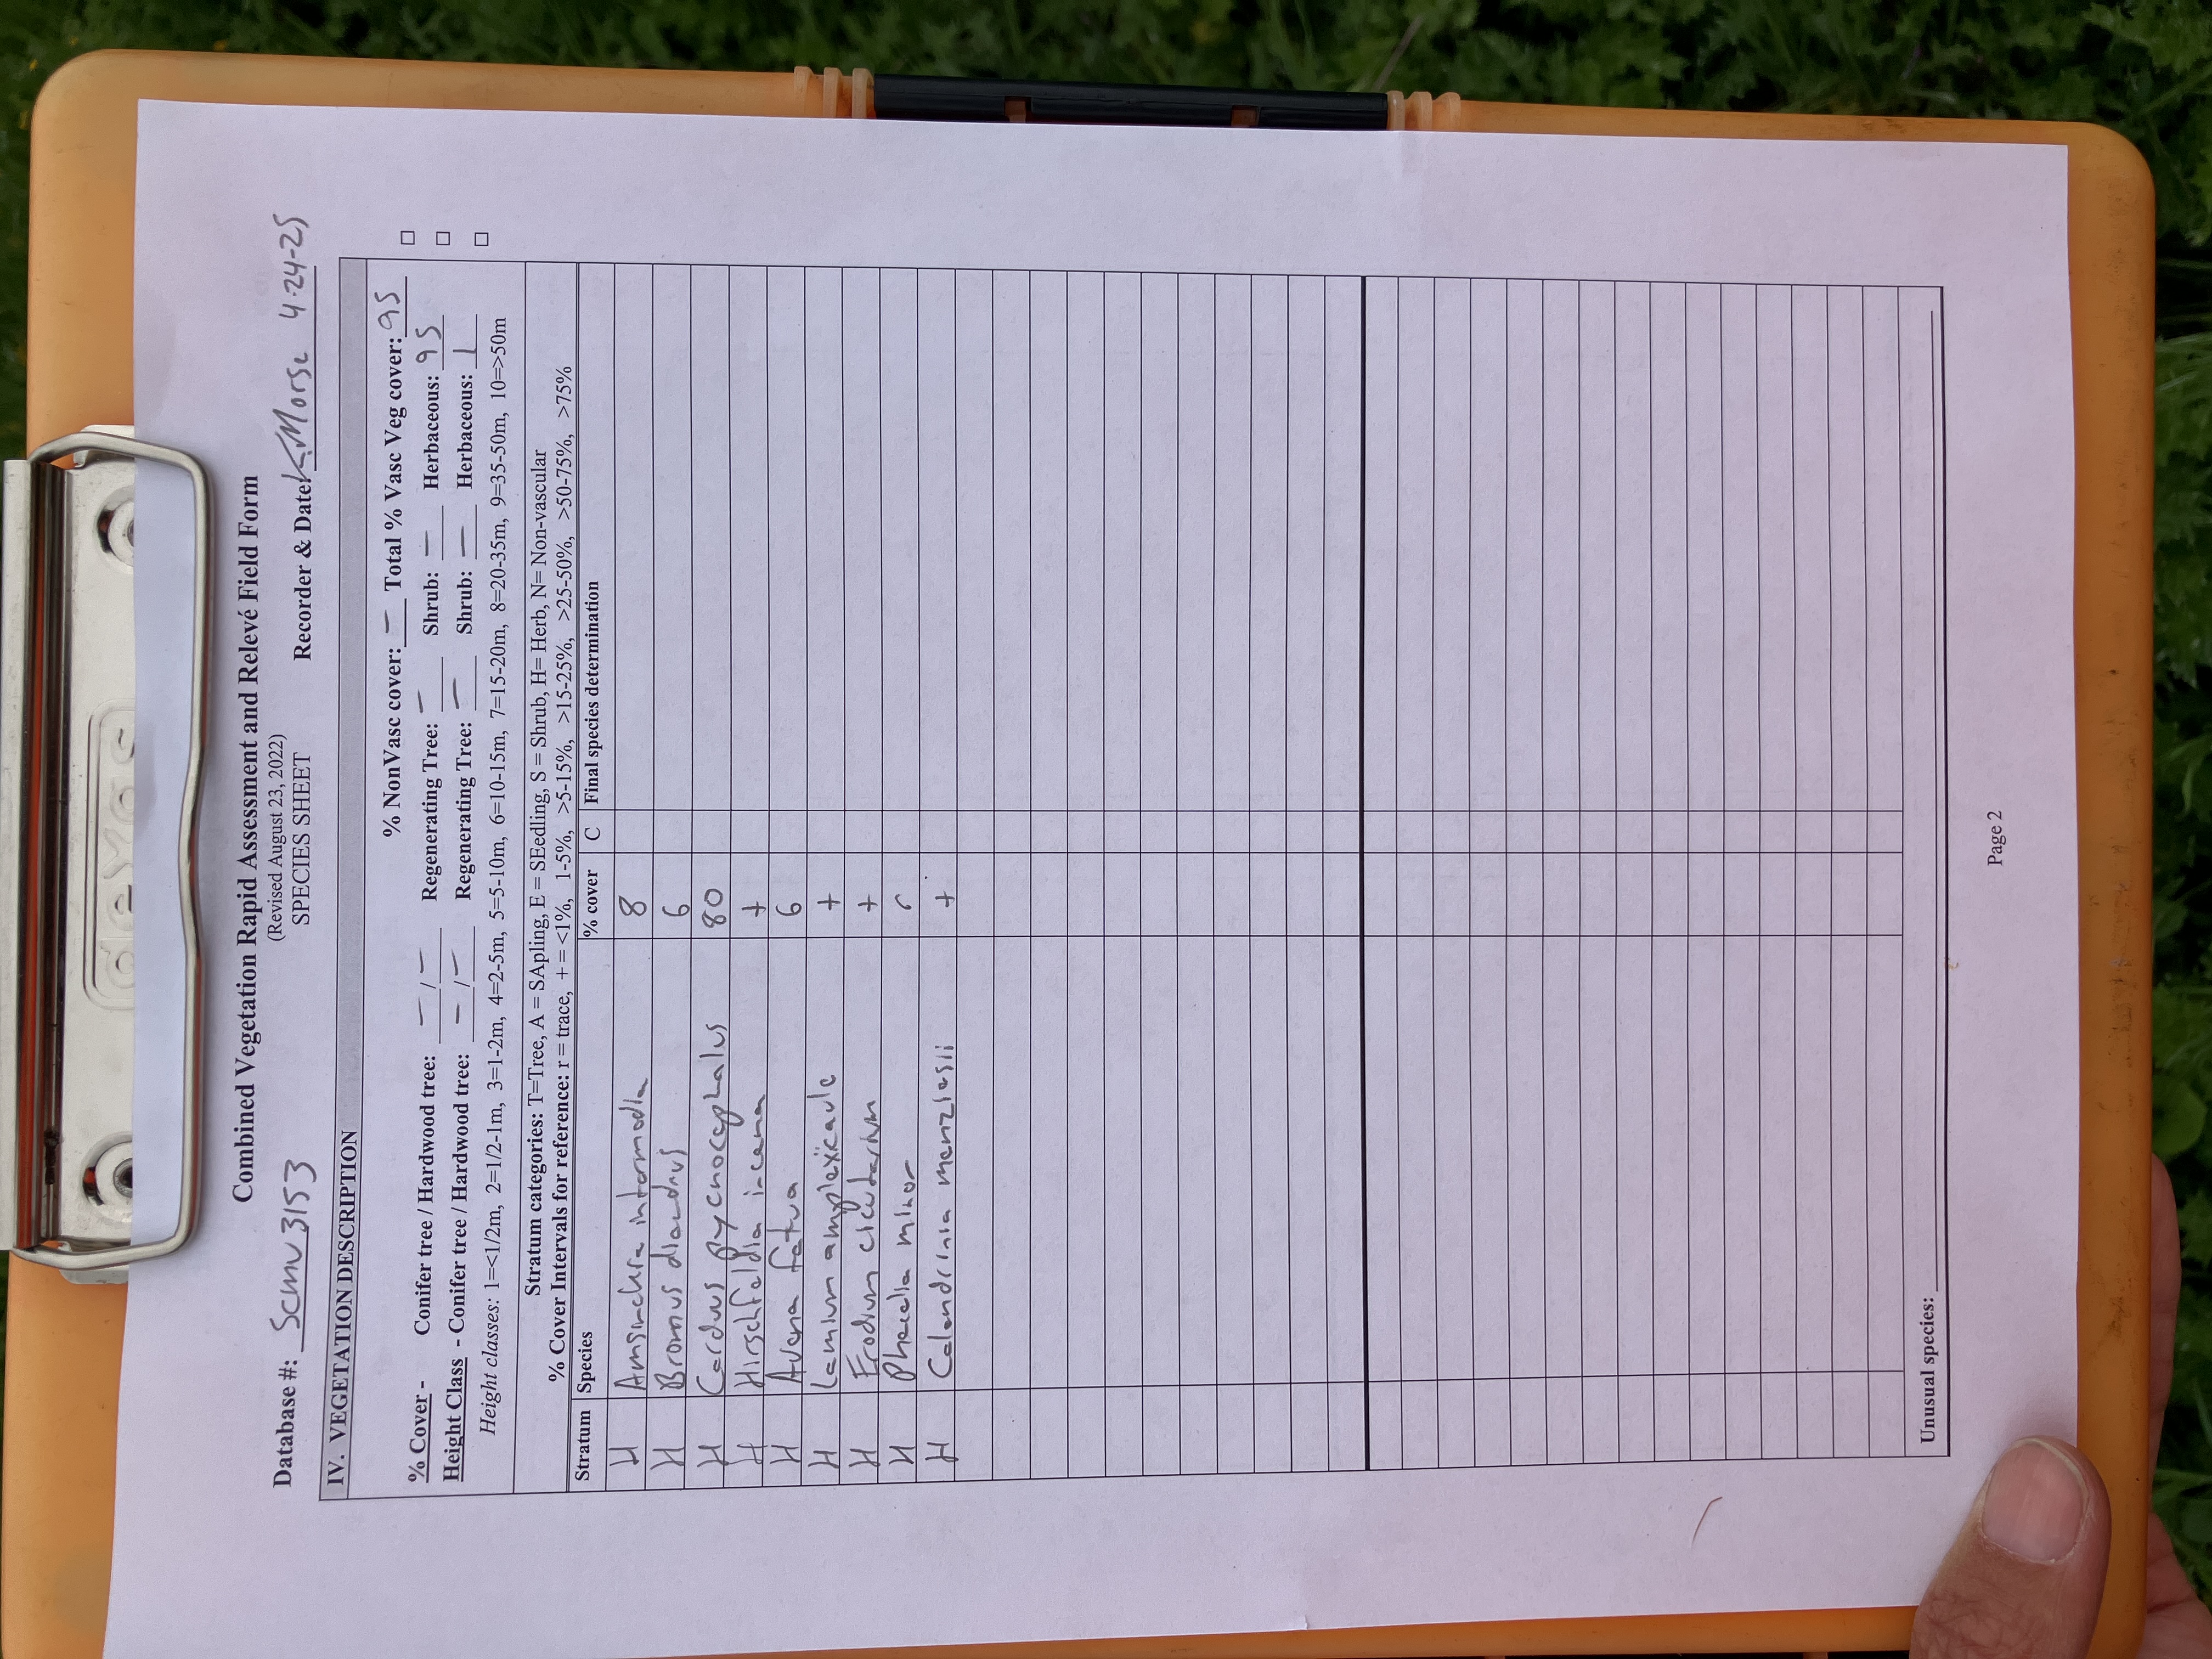 Combined Vegetation Rapid Assessment and Relevé Field Form
(Revised August 23, 2022)
SPECIES SHEET
Database #: Scmv3153 Recorder & Date K. Morse 4-24-25
IV. VEGETATION DESCRIPTION
% NonVasc cover: – Total % Vasc Veg cover: 95
% Cover - Conifer tree / Hardwood tree: – / – Regenerating Tree: – Shrub: – Herbaceous: 95
Height Class - Conifer tree / Hardwood tree: – / – Regenerating Tree: – Shrub: – Herbaceous: 1
Height classes: 1=<1/2m, 2=1/2-1m, 3=1-2m, 4=2-5m, 5=5-10m, 6=10-15m, 7=15-20m, 8=20-35m, 9=35-50m, 10=>50m
Stratum categories: T=Tree, A = SApling, E = SEedling, S = Shrub, H= Herb, N= Non-vascular
% Cover Intervals for reference: r = trace, + = <1%, 1-5%, >5-15%, >15-25%, >25-50%, >50-75%, >75%
Stratum Species % cover C Final species determination
H Amsinckia intermedia 8
H Bromus diandrus 6
H Carduus pycnocephalus 80
H Hirschfeldia incana +
H Avena fatua 6
H Lamium amplexicaule +
H Erodium cicutarium +
H Phacelia minor r
H Calandrinia menziesii +
Unusual species:
Page 2